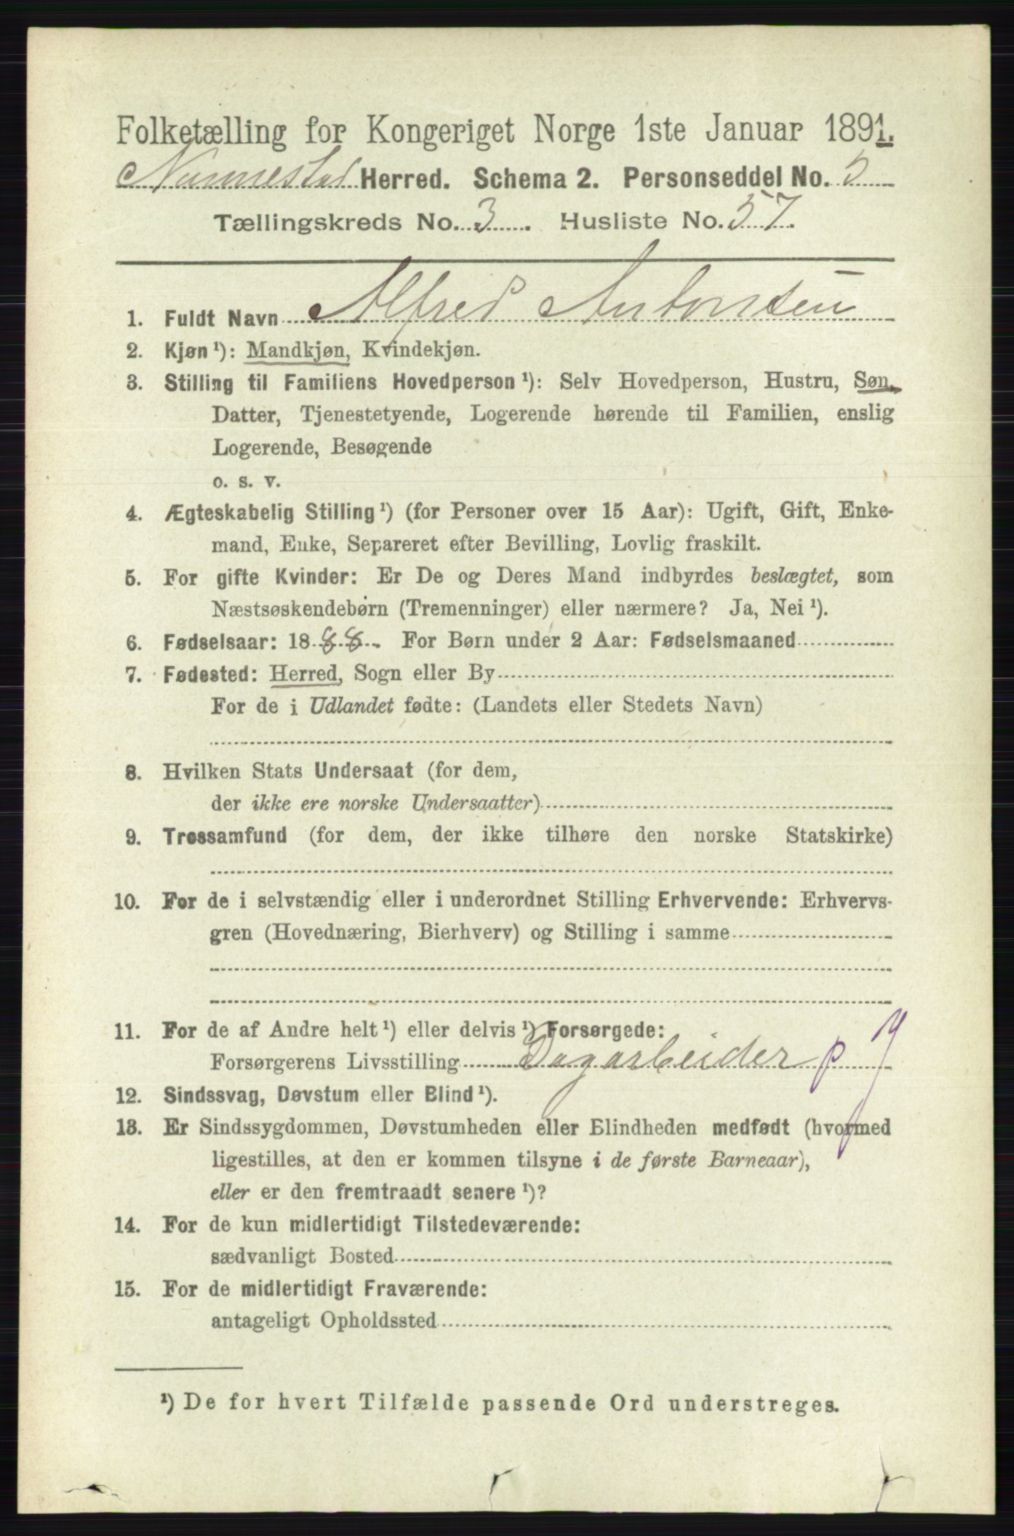 Folketælling for Kongeriget Norge 1ste Januar 1891.
Nannestad Herred. Schema 2. Personseddel No. 5
Tællingskreds No. 3. Husliste No. 57.
1. Fuldt Navn Alfred Antonsen
2. Kjøn¹): Mandkjøn, Kvindekjøn.
3. Stilling til Familiens Hovedperson¹): Selv Hovedperson, Hustru, Søn,
Datter, Tjenestetyende, Logerende hørende til Familien, enslig
Logerende, Besøgende
o. s. v.
4. Ægteskabelig Stilling¹) (for Personer over 15 Aar): Ugift, Gift, Enke-
mand, Enke, Separeret efter Bevilling, Lovlig fraskilt.
5. For gifte Kvinder: Er De og Deres Mand indbyrdes beslægtet, som
Næstsøskendebørn (Tremenninger) eller nærmere? Ja, Nei¹).
6. Fødselsaar: 1888. For Børn under 2 Aar: Fødselsmaaned
7. Fødested: Herred, Sogn eller By
For de i Udlandet fødte: (Landets eller Stedets Navn)
8. Hvilken Stats Undersaat (for dem,
der ikke ere norske Undersaatter)
9. Trossamfund (for dem, der ikke tilhøre den norske Statskirke)
10. For de i selvstændig eller i underordnet Stilling Erhvervende: Erhvervs-
gren (Hovednæring, Bierhverv) og Stilling i samme
11. For de af Andre helt¹) eller delvis¹) Forsørgede:
Forsørgerens Livsstilling Dagarbeider p g
12. Sindssvag, Døvstum eller Blind¹).
13. Er Sindssygdommen, Døvstumheden eller Blindheden medfødt (hvormed
ligestilles, at den er kommen tilsyne i de første Barneaar),
eller er den fremtraadt senere¹)?
14. For de kun midlertidigt Tilstedeværende:
sædvanligt Bosted
15. For de midlertidigt Fraværende:
antageligt Opholdssted
¹) De for hvert Tilfælde passende Ord understreges.